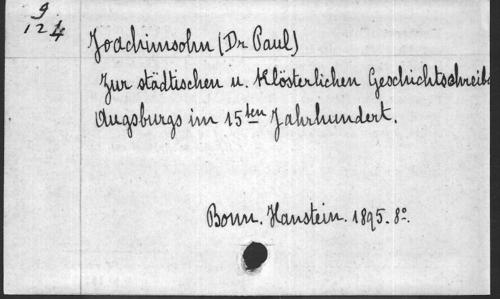 9
124
Joachimsohn (Dr Paul)
Zur städtischen u. Klösterlichen Geschichtschreib
Augsburgs im 15ten Jahrhundert.
Bonn. Hanstein. 1895. 8º.